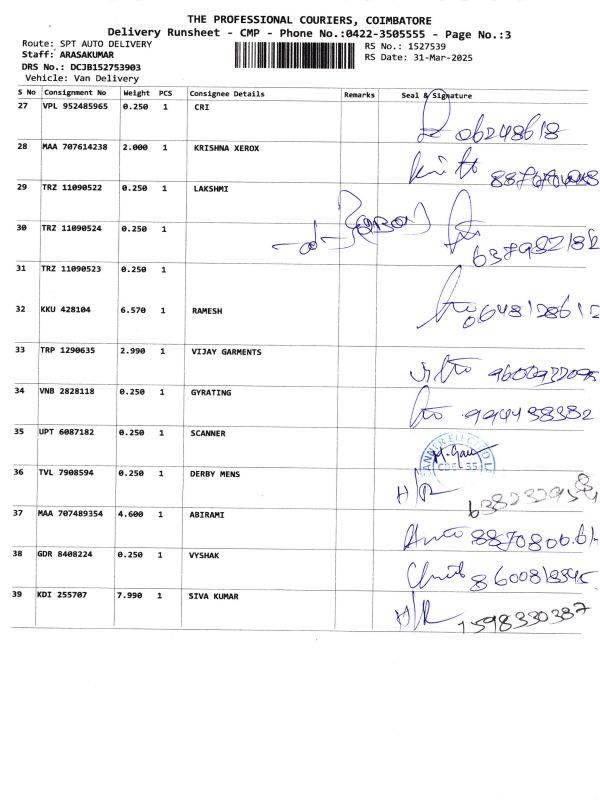 THE PROFESSIONAL COURIERS, COIMBATORE
Delivery Runsheet - CMP - Phone No.:0422-3505555 - Page No.:3
Route: SPT AUTO DELIVERY
RS No.: 1527539
Staff: ARASAKUMAR
RS Date: 31-Mar-2025
DRS No.: DCJB152753903
Vehicle: Van Delivery
S No Consignment No Weight PCS Consignee Details Remarks Seal & Signature
27 VPL 952485965 0.250 1 CRI
28 MAA 707614238 2.000 1 KRISHNA XEROX
29 TRZ 11090522 0.250 1 LAKSHMI
30 TRZ 11090524 0.250 1
31 TRZ 11090523 0.250 1
32 KKU 428104 6.570 1 RAMESH
33 TRP 1290635 2.990 1 VIJAY GARMENTS
34 VNB 2828118 0.250 1 GYRATING
35 UPT 6087182 0.250 1 SCANNER
36 TVL 7908594 0.250 1 DERBY MENS
37 MAA 707489354 4.600 1 ABIRAMI
38 GDR 8408224 0.250 1 VYSHAK
39 KDI 255707 7.990 1 SIVA KUMAR H/R 1598330387